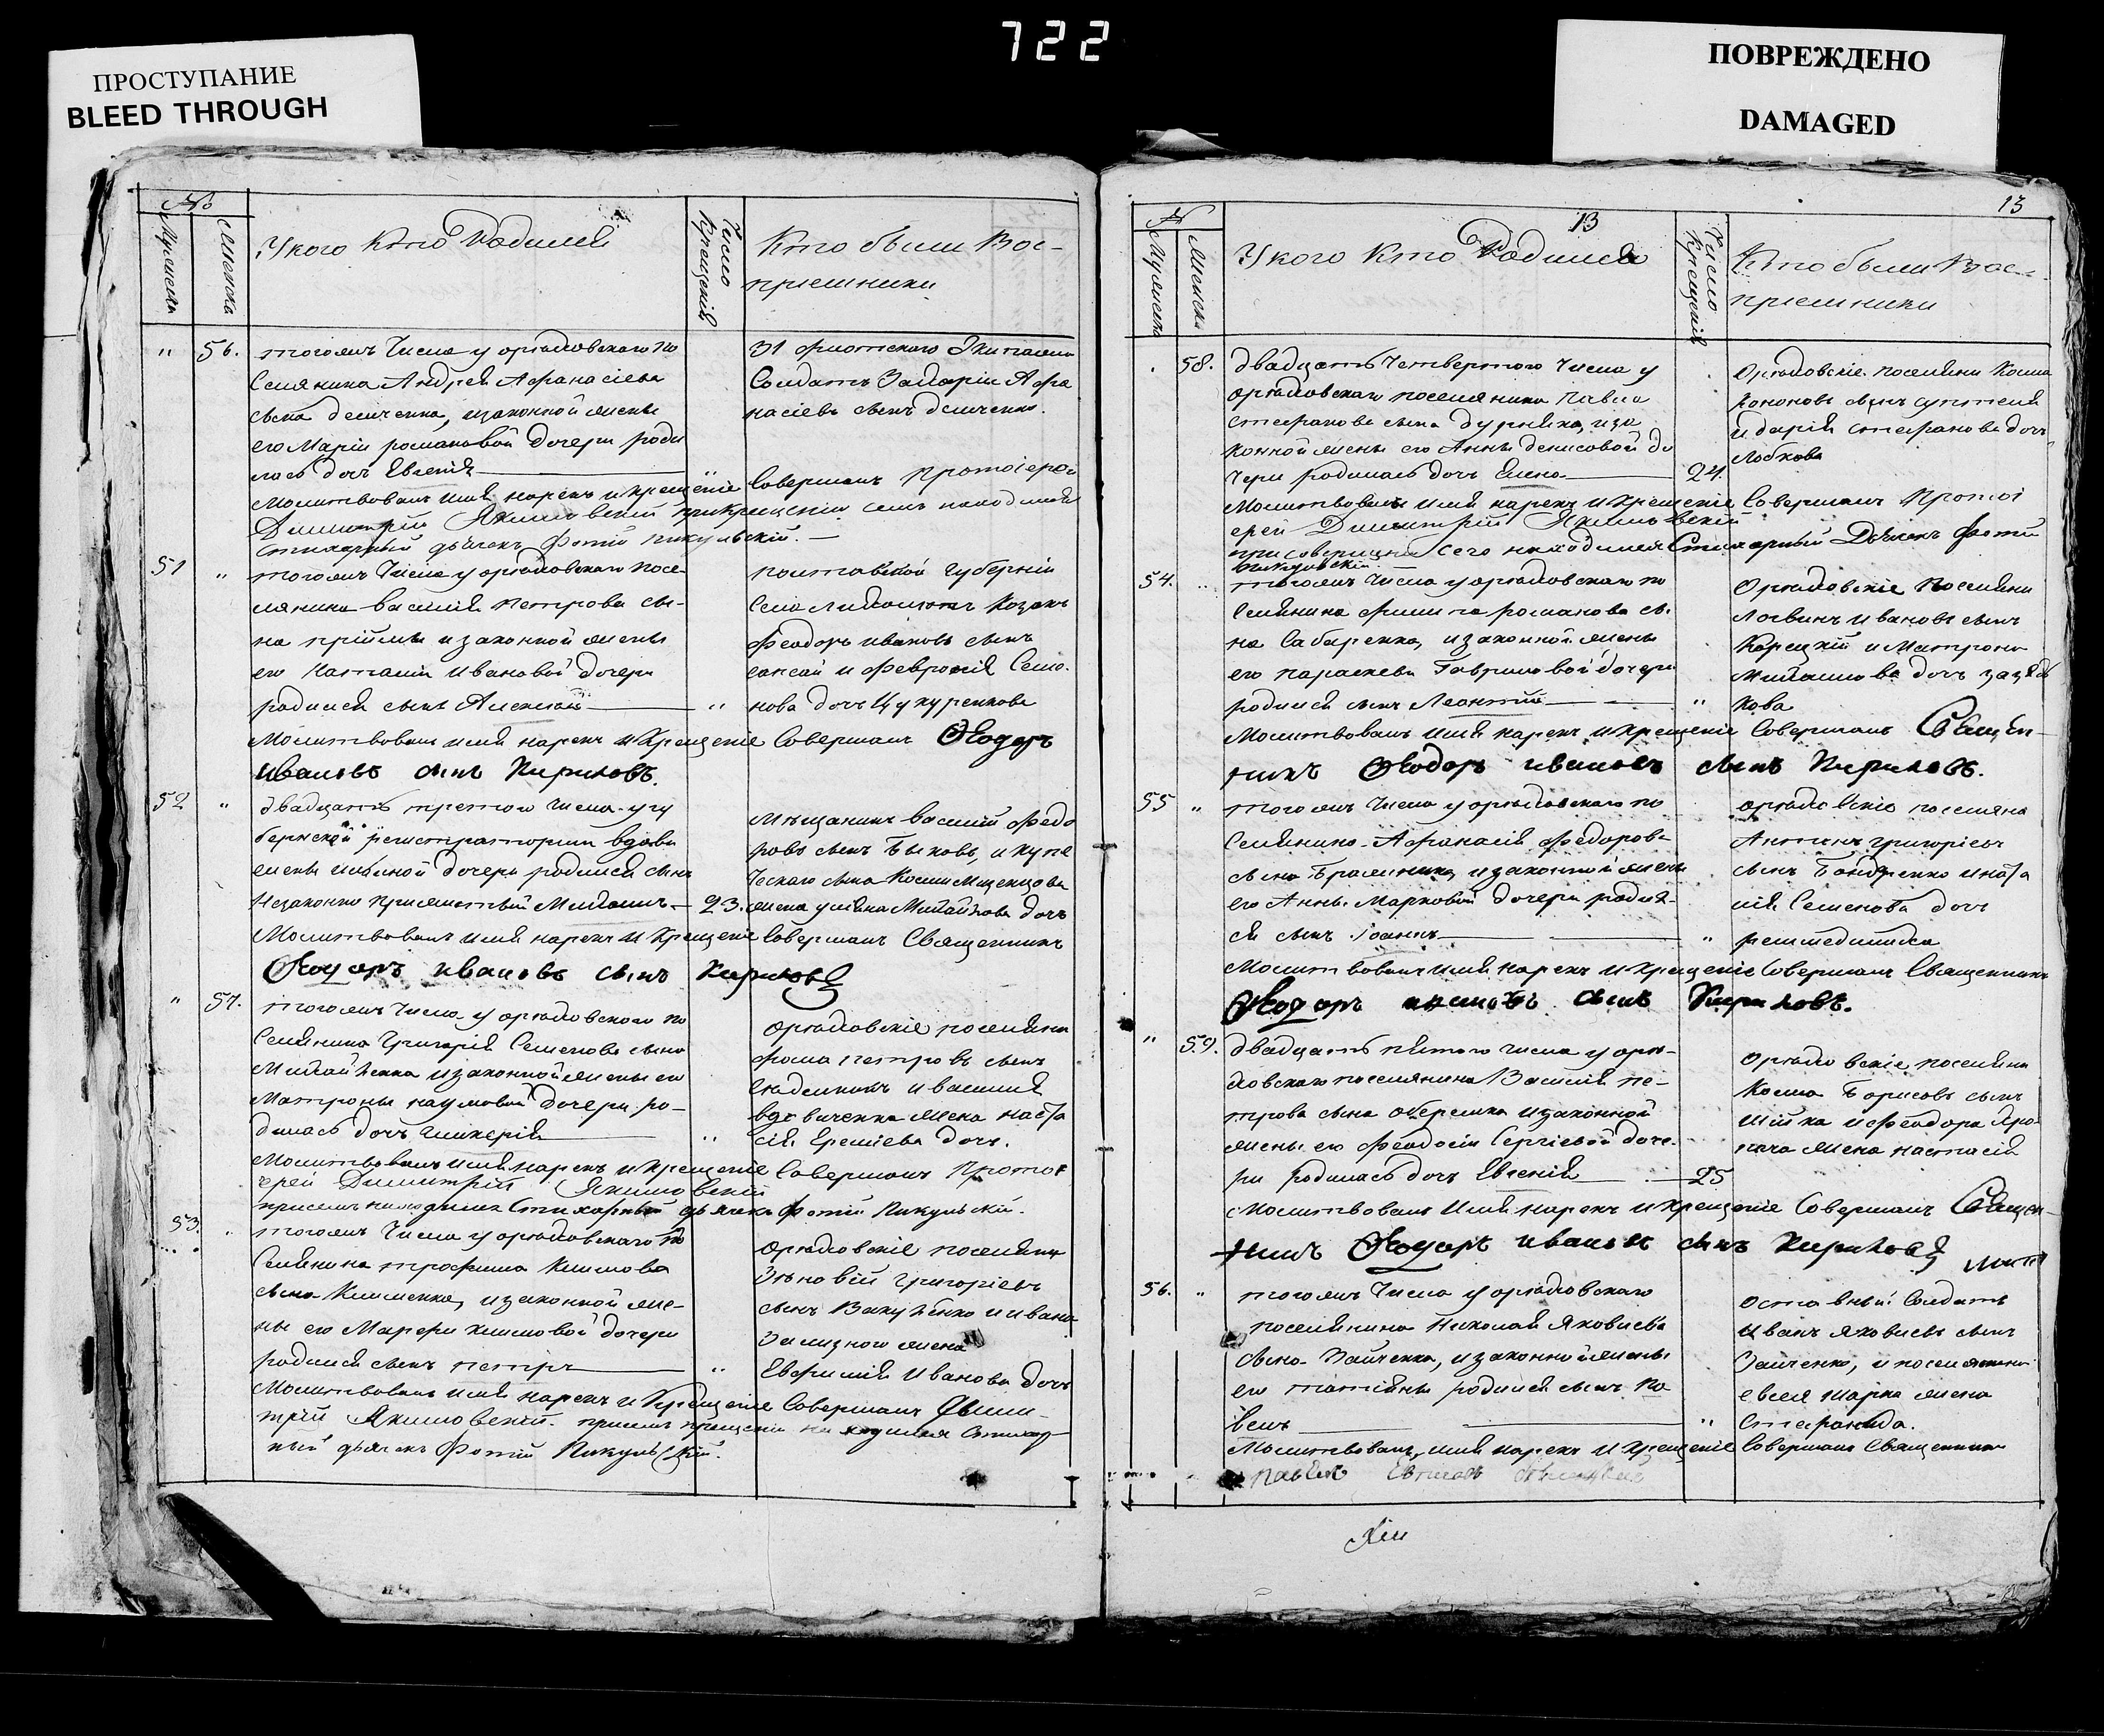 722
ПРОСТУПАНИЕ
BLEED THROUGH
ПОВРЕЖДЕНО
DAMAGED
№
Мужеска
Женска
У кого кто Родился
Число крещенія
Кто были Вос-
приемники
" 56. тогожъ Числа у орѣховскаго по
селянина Андрея Афанасіева
сына демченка, и законной жены
его Маріи романовой дочери роди
лась дочь Евгенія "
31 флотского Экипажа
Солдатъ Захарій Афа
насіевъ сынъ демченко.
Молитвовалъ имя нарекъ и крещеніе Совершалъ Протоіерей
Димитрій Якимовскій при крещеніи семъ находился
стихарный дьячекъ Фотій Пикульскій.
51 " тогожъ Числа у орѣховскаго посе-
лянина василія петрова сы-
на пріймы и законной жены
его Наталіи Ивановой дочери
родился сынъ Алексій "
полтавской губерніи
Феодоръ ивановъ сынъ
и Феvронія Семо.
нова дочь Цукуренкова
Молитвовалъ имя нарекъ и крещеніе Совершалъ Ѳеодоръ
ивановъ сынъ Кириловъ.
52 " двадцать третого числа у гу
бернской регистраторши вдовы
жены дочери родился сынъ
Незаконно прижитый Михаилъ 23.
Мѣщанинъ василій федо
ровъ сынъ Быковъ, и купе
ческаго сына Косми
жена уліяна Михайлова дочь
Молитвовалъ имя нарекъ и крещеніе Совершалъ Священникъ
Ѳеодоръ ивановъ сынъ Кириловъ
" 57. тогожъ Числа у орѣховского по
Селянина Григорія Семенова сына
Михайленка и законной жены его
Матроны наумовой дочери ро-
дилась дочь Гликерія "
орѣховскіе поселяна
фома петровъ сынъ
и василія
вдовиченка жена наста
сія Еремѣева дочь.
Молитвовалъ имя нарекъ и крещеніе Совершалъ Протоі
ерей Димитрій Якимовскій
присемъ находился Стихарный дьячекъ Фотій Пикульскій.
53. " тогожъ Числа у орѣховскаго по
Селянина трофима Климова
сына Клименка, и законной же-
ны его Марфы климовой дочери
родился сынъ петръ "
орѣховскіе поселяны
Зѣновій григоріевъ
сынъ Вакуленко и ивана
Зализного жена
Евфимія Иванова дочь
Молитвовалъ имя нарекъ и крещеніе Совершалъ Дими-
трій Якимовскій. присемъ крещеніи находился Стихар-
ный дьячекъ Фотій Пикульскій.
13
13
№
Мужеска
Женска
У кого Кто Родился
Число крещенія
Кто были Вос-
приемники
58. двадцать Четвертого Числа у
орѣховскаго поселянина Павла
стефанова сына дурняка, и за
конной жены его Анны денисовой до
чери родилась дочь Елена 24.
Орѣховскіе поселяни Косма
Кононовъ сынъ
и дарія стефанова дочь
Лобкова
Молитвовалъ имя нарекъ и крещеніе Совершалъ Протоі
ерей Димитрій Якимовскій
при совершеніи сего находился Стихарный Дьячекъ Фотій
Пикульскій
54. " тогожъ Числа у орѣховскаго по
Селянина филипа романова сы
на Сабаренка, и законной жены
его параскевы Гавриловой дочери
родился сынъ Леонтій "
Орѣховскіе Поселяни
Логвинъ ивановъ сынъ
Корецкій и Матрона
Михаилова дочь
кова
Молитвовалъ имя нарекъ и крещеніе Совершалъ Священ-
никъ Ѳеодоръ ивановъ сынъ Кириловъ.
55 " тогожъ Числа у орѣховскаго по
Селянина Афанасія федорова
сына Бражника, и законной жены
его Анны Марковой дочери родил-
ся сынъ Іоаннъ "
орѣховскіе поселяна
Антонъ григоріевъ
сынъ Бондренко и ната
лія Семенова дочь
Молитвовалъ имя нарекъ и крещеніе Совершалъ Священникъ
Ѳеодоръ ивановъ сынъ Кириловъ.
" 59. двадцать пятого числа у орѣ-
ховскаго поселянина Василія пе-
трова сына оберемка и законной
жены его Феодосіи Сергіевой доче-
ри родилась дочь Евгенія 25
Орѣховскіе поселяна
Косма Борисовъ сынъ
шійка и Феодора
жена настасія
Молитвовалъ имя нарекъ и крещеніе Совершалъ Священ-
никъ Ѳеодоръ ивановъ сынъ Кириловъ
56. " тогожъ Числа у орѣховскаго
поселянина Николая Яковлева
сына Зайченка, и законной жены
его татіяны родился сынъ Па
велъ "
отставный Солдатъ
Иванъ яковлевъ сынъ
Заиченко, и поселянина
жена
Стефанида.
Молитвовалъ, имя нарекъ и крещеніе Совершалъ Священникъ